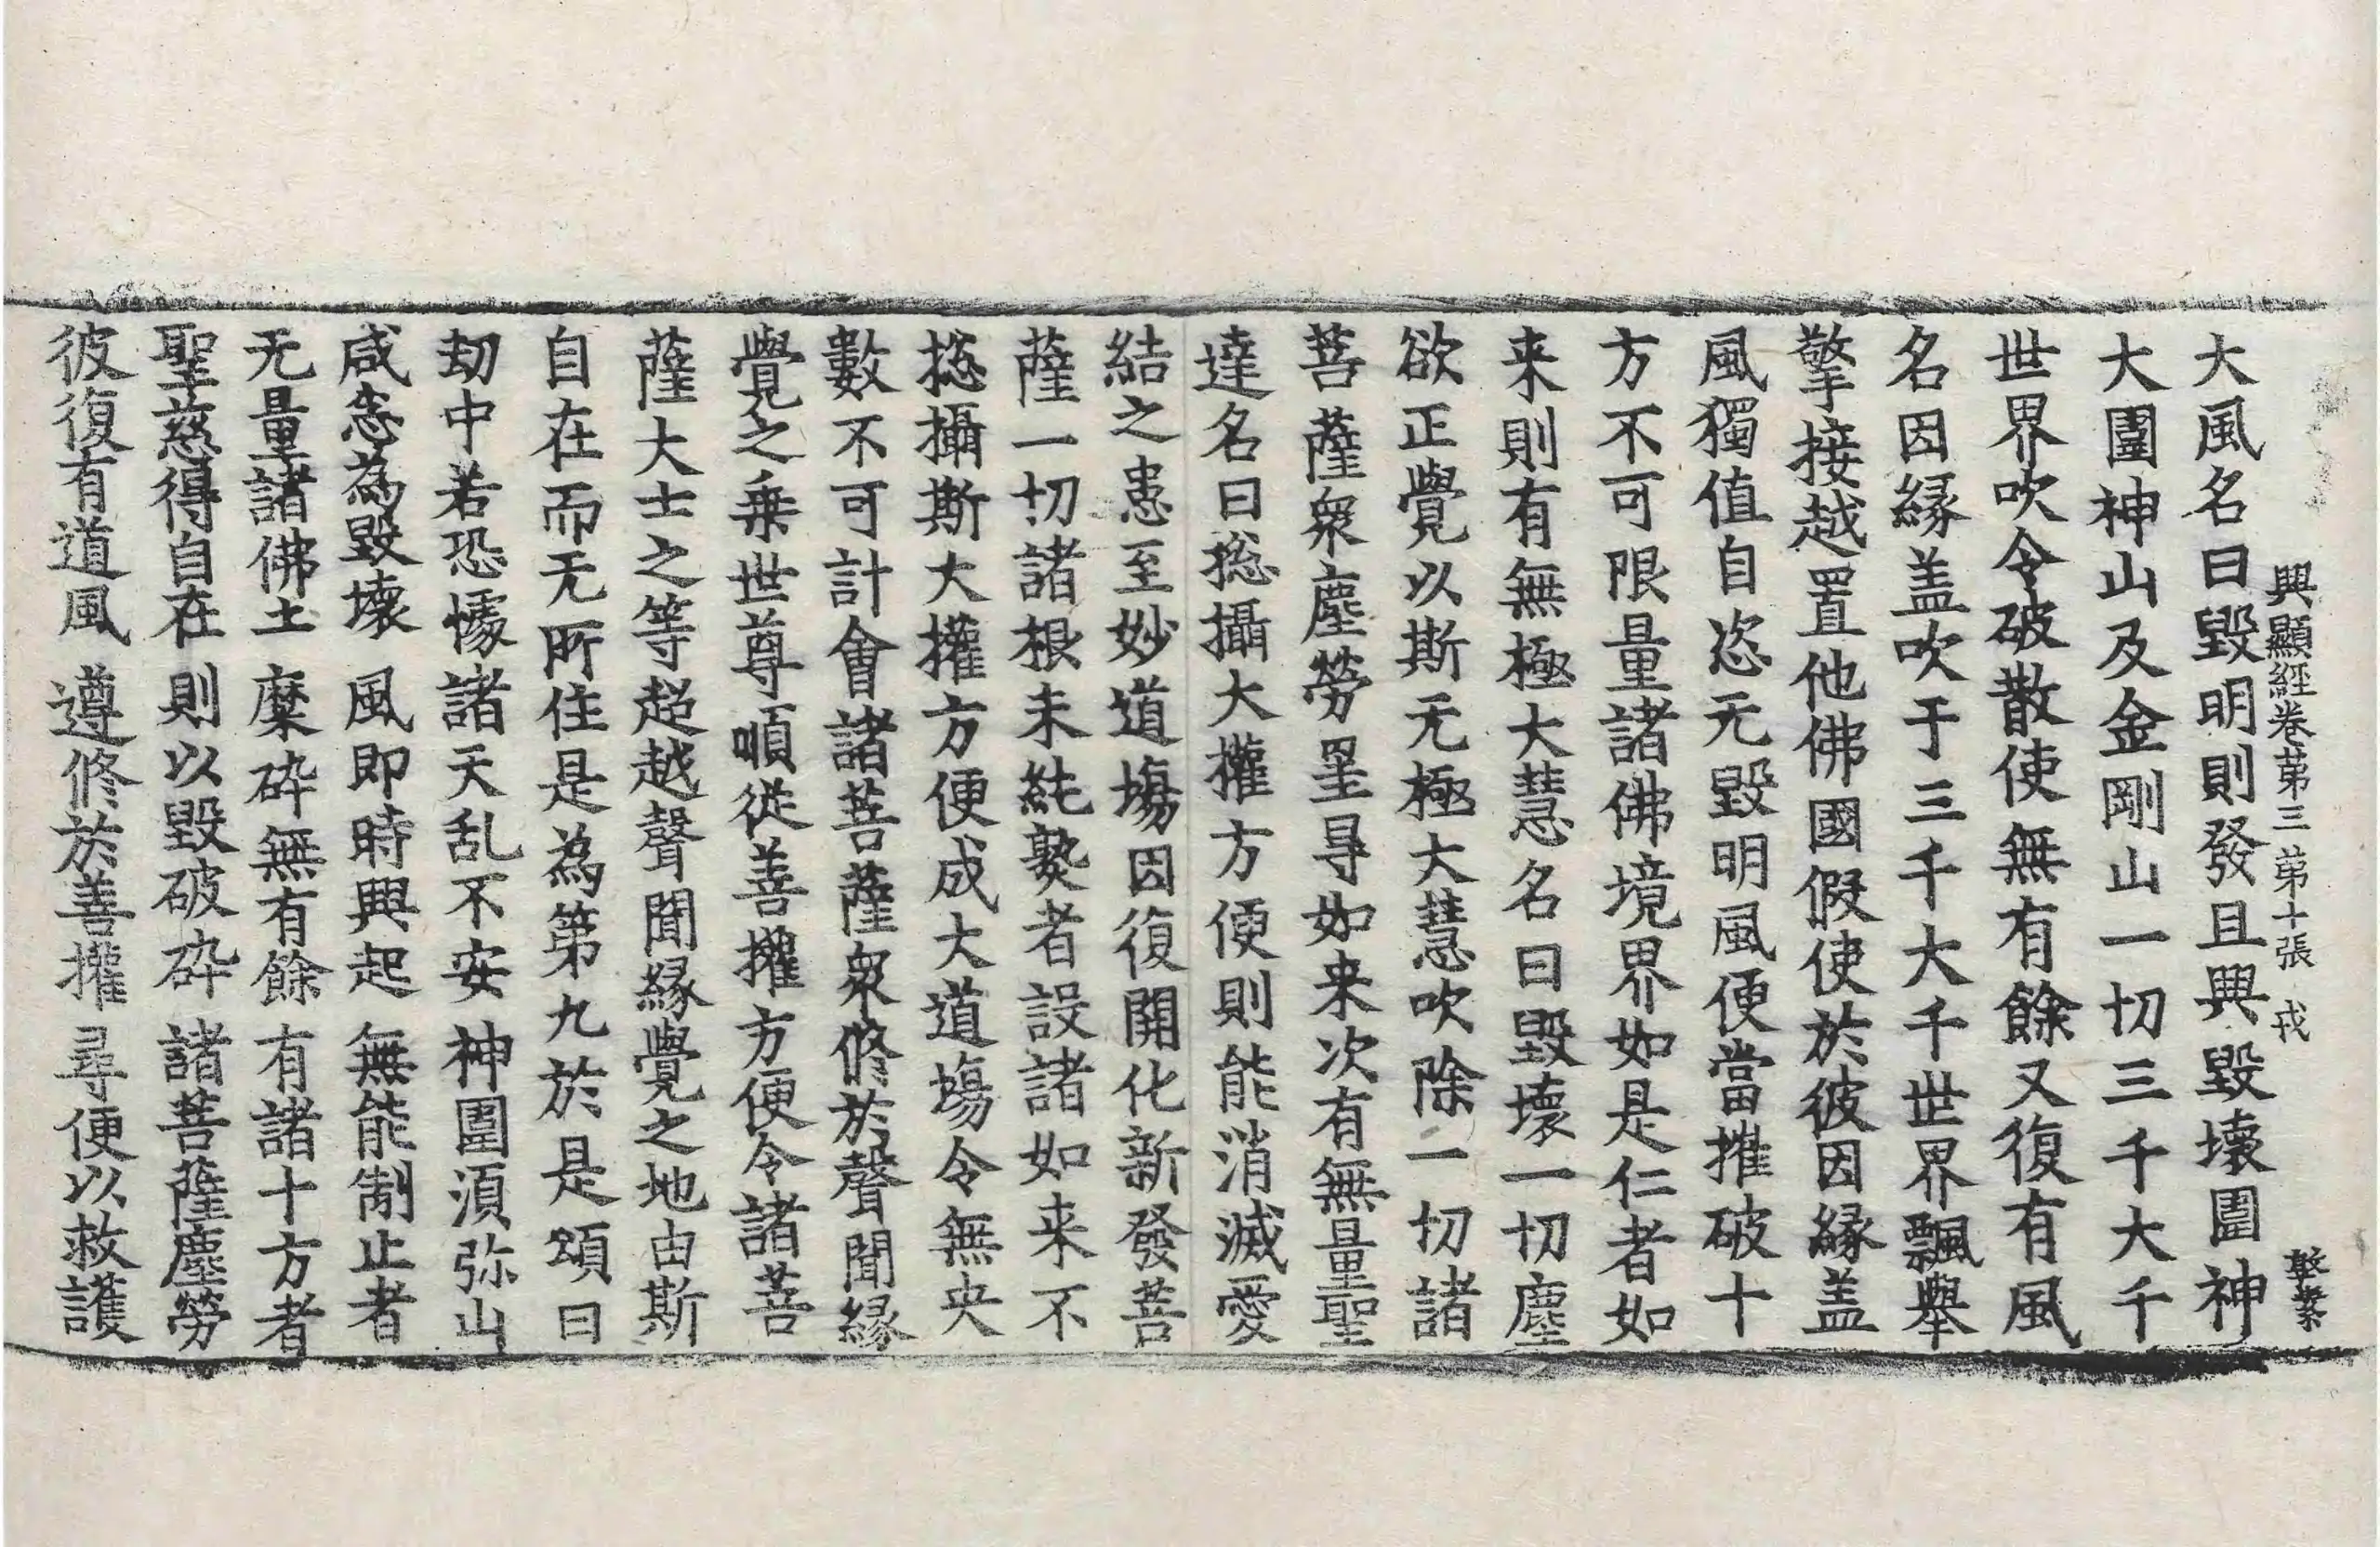 興顯經卷第三 第十張 戎
大風名曰毀明則發且興毀壞圍神
大圍神山及金剛山一切三千大千
世界吹令破散使無有餘又復有風
名因緣盖吹于三千大千世界飄舉
擎接越置他佛國假使於彼因緣盖
風獨值自恣无毀明風便當摧破十
方不可限量諸佛境界如是仁者如
来則有無極大慧名曰毀壞一切塵
欲正覺以斯无極大慧吹除一切諸
菩薩衆塵勞罣㝵如来次有無量聖
達名曰揔攝大權方便則能消滅愛
結之患至妙道塲因復開化新發菩
薩一切諸根未純𤍨者設諸如来不
揔攝斯大權方便成大道塲令無央
數不可計會諸菩薩衆修於聲聞緣
覺之乗世尊順從善權方便令諸菩
薩大士之等超越聲聞緣覺之地由斯
自在而无所住是為第九於是頌曰
劫中若恐懅 諸天乱不安 神圍須弥山
咸悉為毀壞 風即時興起 無能制止者
无量諸佛土 糜碎無有餘 有諸十方者
聖慈得自在 則以毀破碎 諸菩薩塵勞
彼復有道風 遵修於善權 尋便以救護